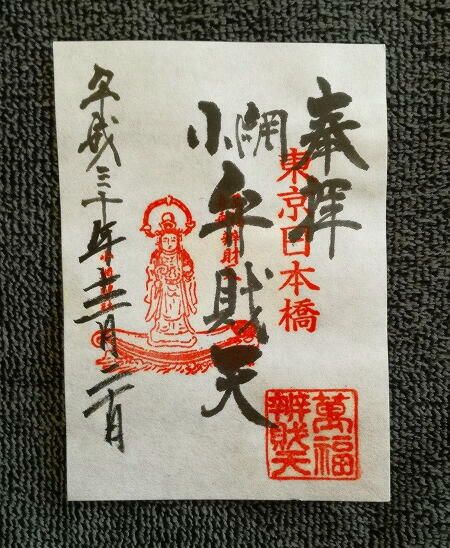 奉拝
東京日本橋
小網
弁財天
萬福
辨財天
平成三十年十二月